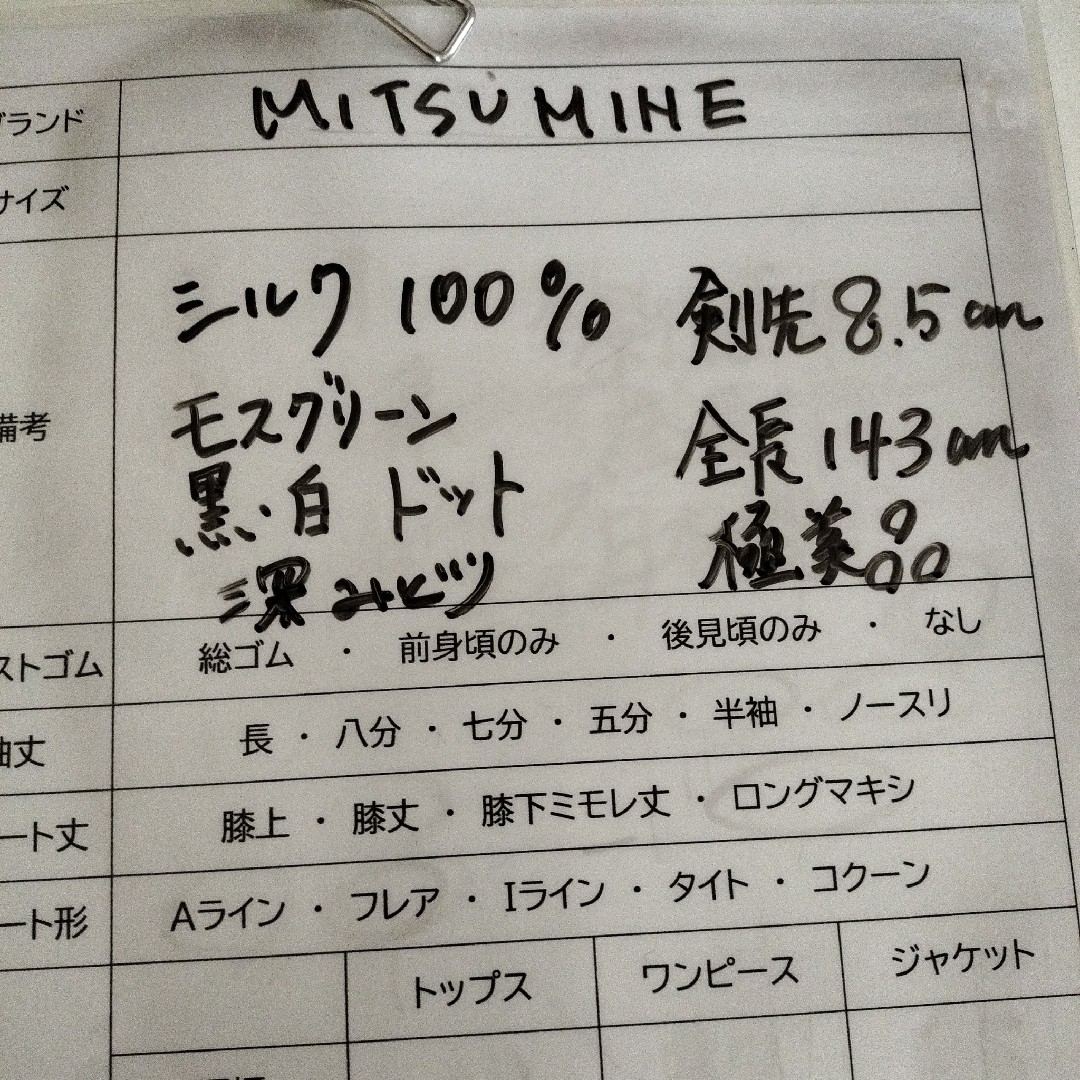 ブランド MITSUMINE
サイズ
備考
シルク 100% 剣先 8.5cm
モスグリーン 全長 143cm
黒、白 ドット 極美品
深みどり
ストゴム 総ゴム ・ 前身頃のみ ・ 後見頃のみ ・ なし
袖丈 長 ・ 八分 ・ 七分 ・ 五分 ・ 半袖 ・ ノースリ
ート丈 膝上 ・ 膝丈 ・ 膝下ミモレ丈 ・ ロングマキシ
ート形 Aライン ・ フレア ・ Iライン ・ タイト ・ コクーン
トップス ワンピース ジャケット